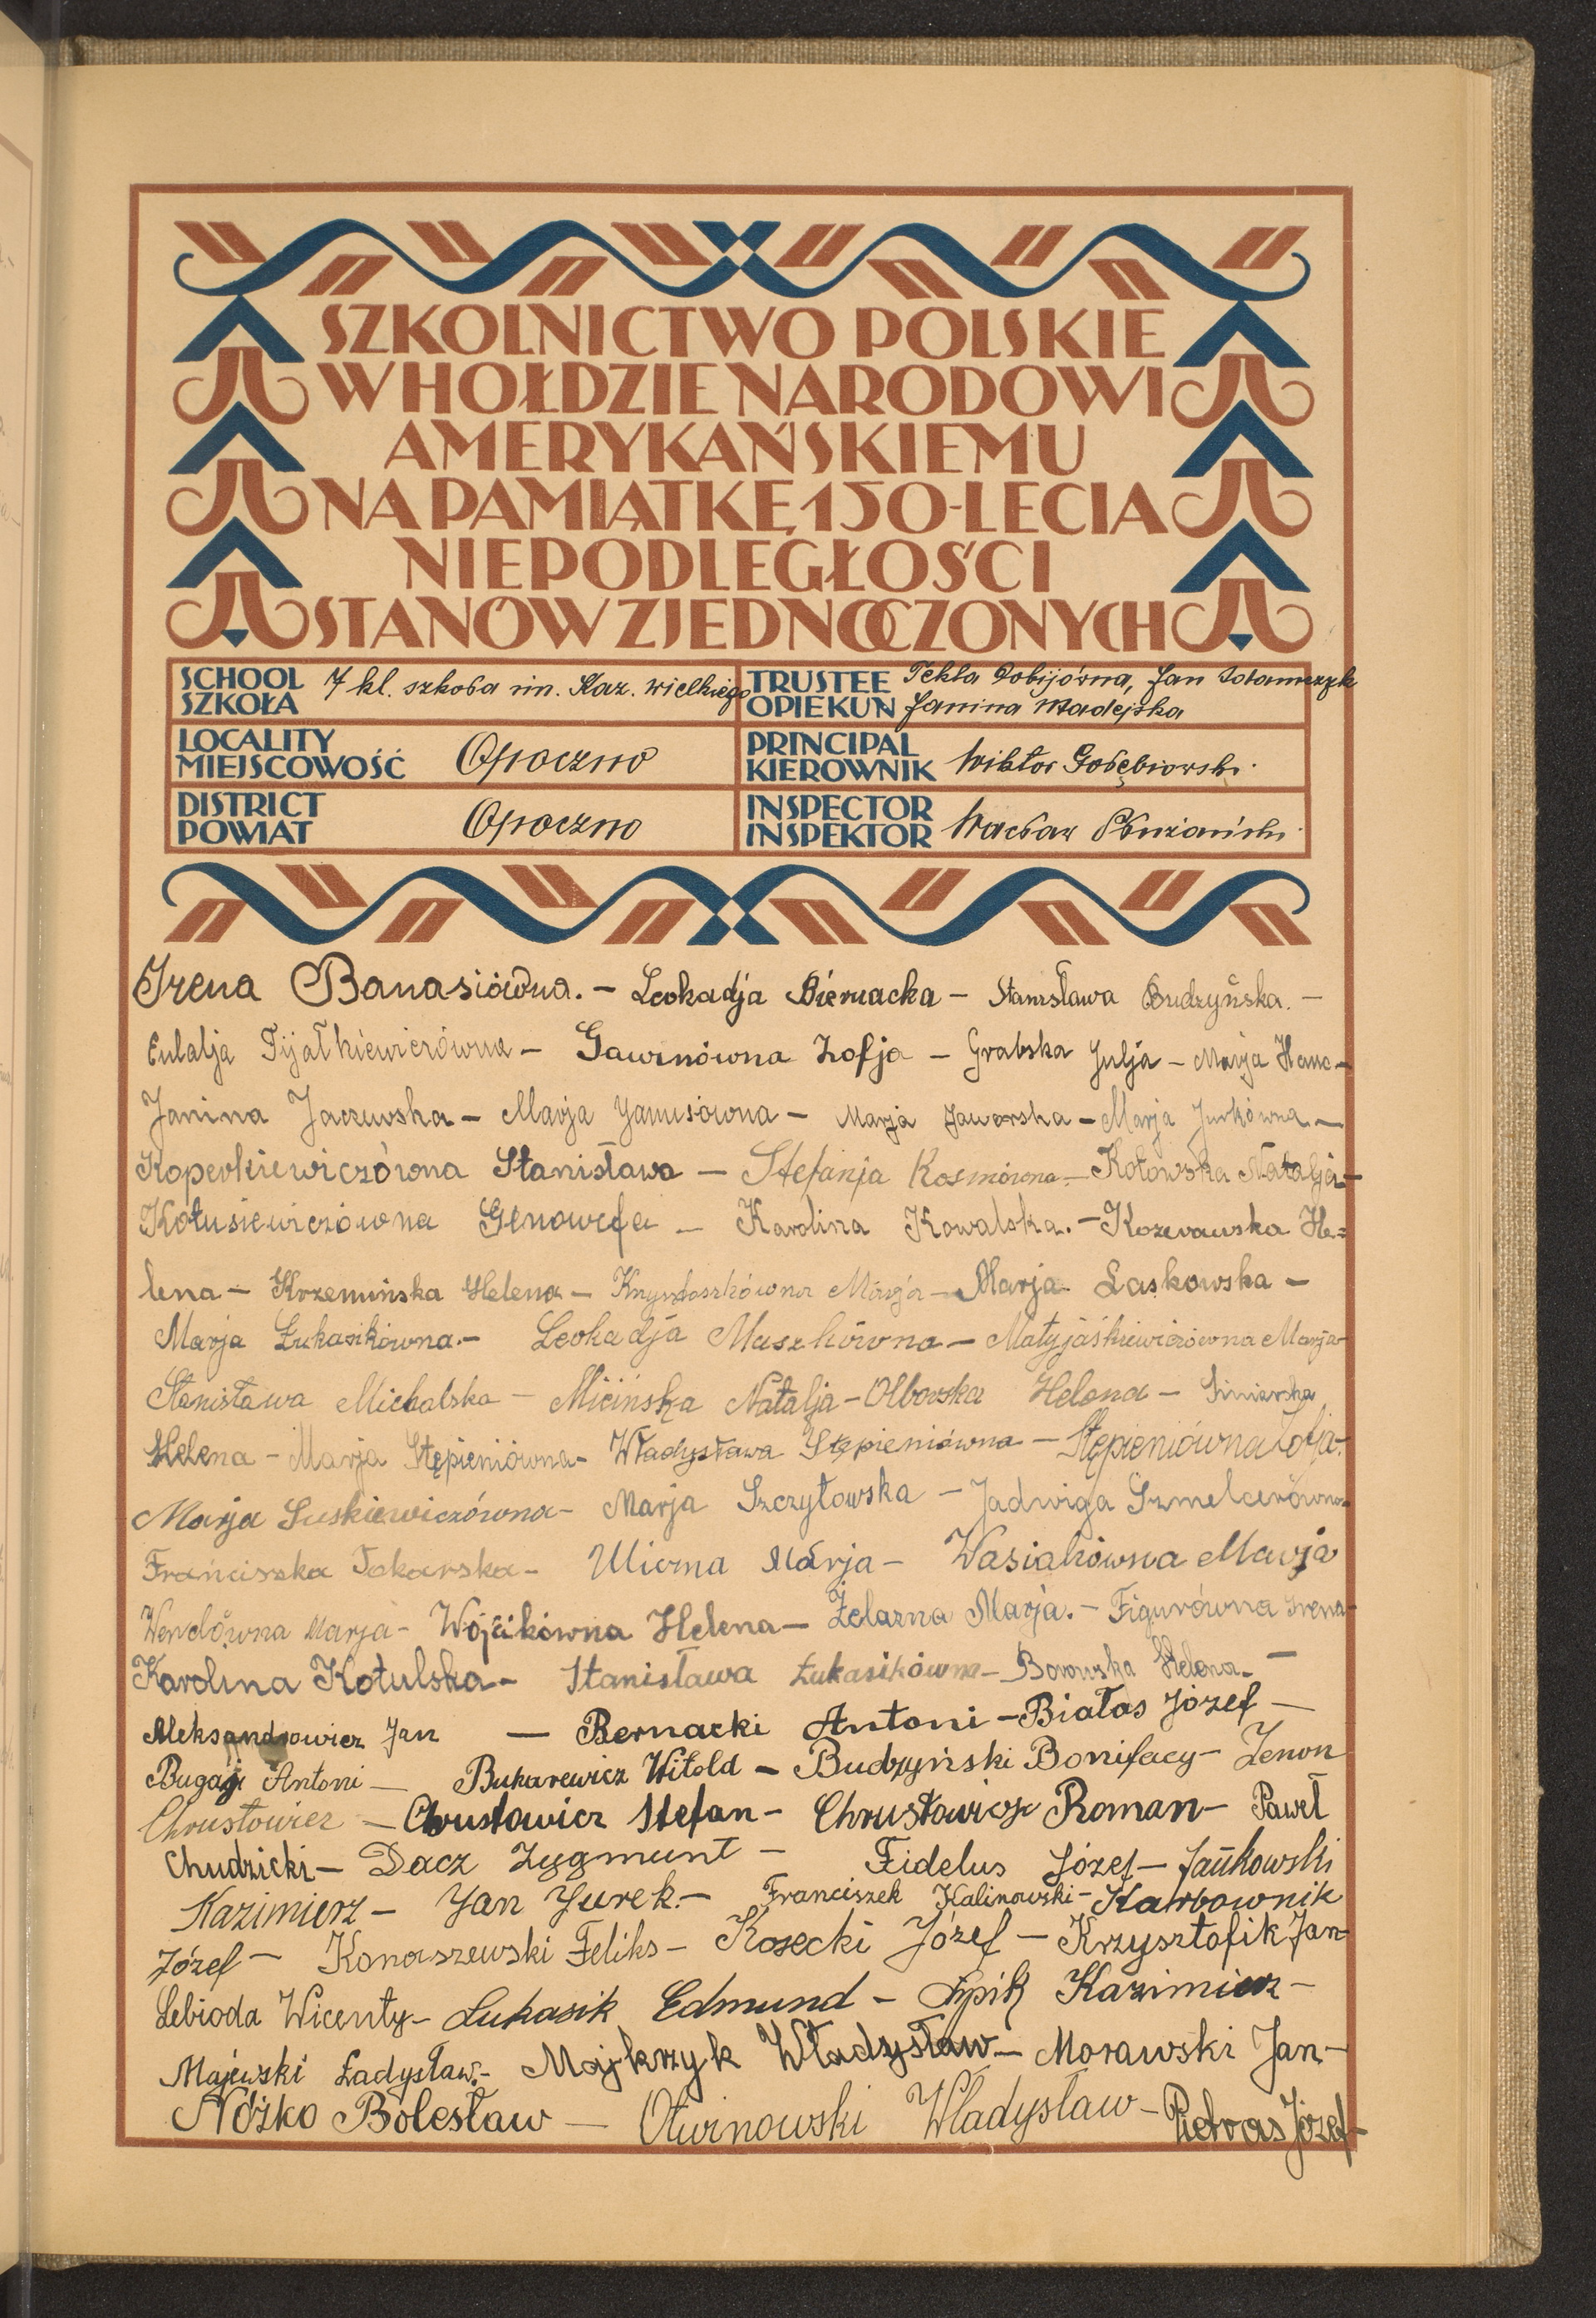 SZKOLNICTWO POLSKIE
W HOŁDZIE NARODOWI
AMERYKAŃSKIEMU
NA PAMIĄTKĘ 150-LECIA
NIEPODLEGŁOŚCI
STANÓW ZJEDNOCZONYCH
SCHOOL
SZKOŁA 7 kl. szkoła im. Kaz. Wielkiego
TRUSTEE Tekla Dobijówna, Jan
OPIEKUN Janina Madejska
LOCALITY
MIEJSCOWOŚĆ Opoczno
PRINCIPAL
KIEROWNIK Wiktor Gołębiowski
DISTRICT
POWIAT Opoczno
INSPECTOR
INSPEKTOR Wacław Płużański
Irena Banasiówna. – Leokadja Biernacka – Stanisława Budzyńska. –
Eulalja Fijałkiewiczówna – Gawinówna Zofja – Grabska Julja – Marja Hanc –
Janina Jaczewska – Marja Janusówna – Marja Jaworska – Marja Jurkówna –
Koperkiewiczówna Stanisława – Stefanja Kosmówna – Kotowska Natalja –
Kotusiewiczówna Genowefa – Karolina Kowalska. – Kozerawska He=
lena – Krzemińska Helena – Marja – Marja Laskowska –
Marja Łukasikówna. – Leokadja Maszkówna – Matyjaśkiewiczówna Marja –
Stanisława Michalska – Micińska Natalja – Olbowska Helena – Siniarska
Helena – Marja Stępieniówna – Władysława Stępieniówna – Stępieniówna Zofja. –
Marja Suskiewiczówna – Marja Szczytowska – Jadwiga Szmelcerówna –
Franciszka Tokarska – Uliczna Marja – Wasiakówna Marja
Wendówna Marja – Wójcikówna Helena – Żelazna Marja. – Figurówna Irena –
Karolina Kotulska – Stanisława Łukasikówna – Borowska Helena. –
Aleksandrowicz Jan – Bernacki Antoni – Białas Józef –
Bugaj Antoni – Bukarewicz Witold – Budzyński Bonifacy – Zenon
Chrustowicz – Chrustowicz Stefan – Chrustowicz Roman – Paweł
Chudzicki – Dacz Zygmunt – Fidelus Józef – Jańkowski
Kazimierz – Jan Jurek. – Franciszek Kalinowski – Karbownik
Józef – Konaszewski Feliks – Kosecki Józef – Krzysztofik Jan –
Lebioda Wicenty – Łukasik Edmund – Łipik Kazimierz –
Majewski Ładysław. – Majkrzyk Władysław – Morawski Jan –
Nóżko Bolesław – Otwinowski Władysław – Pietras Józef –